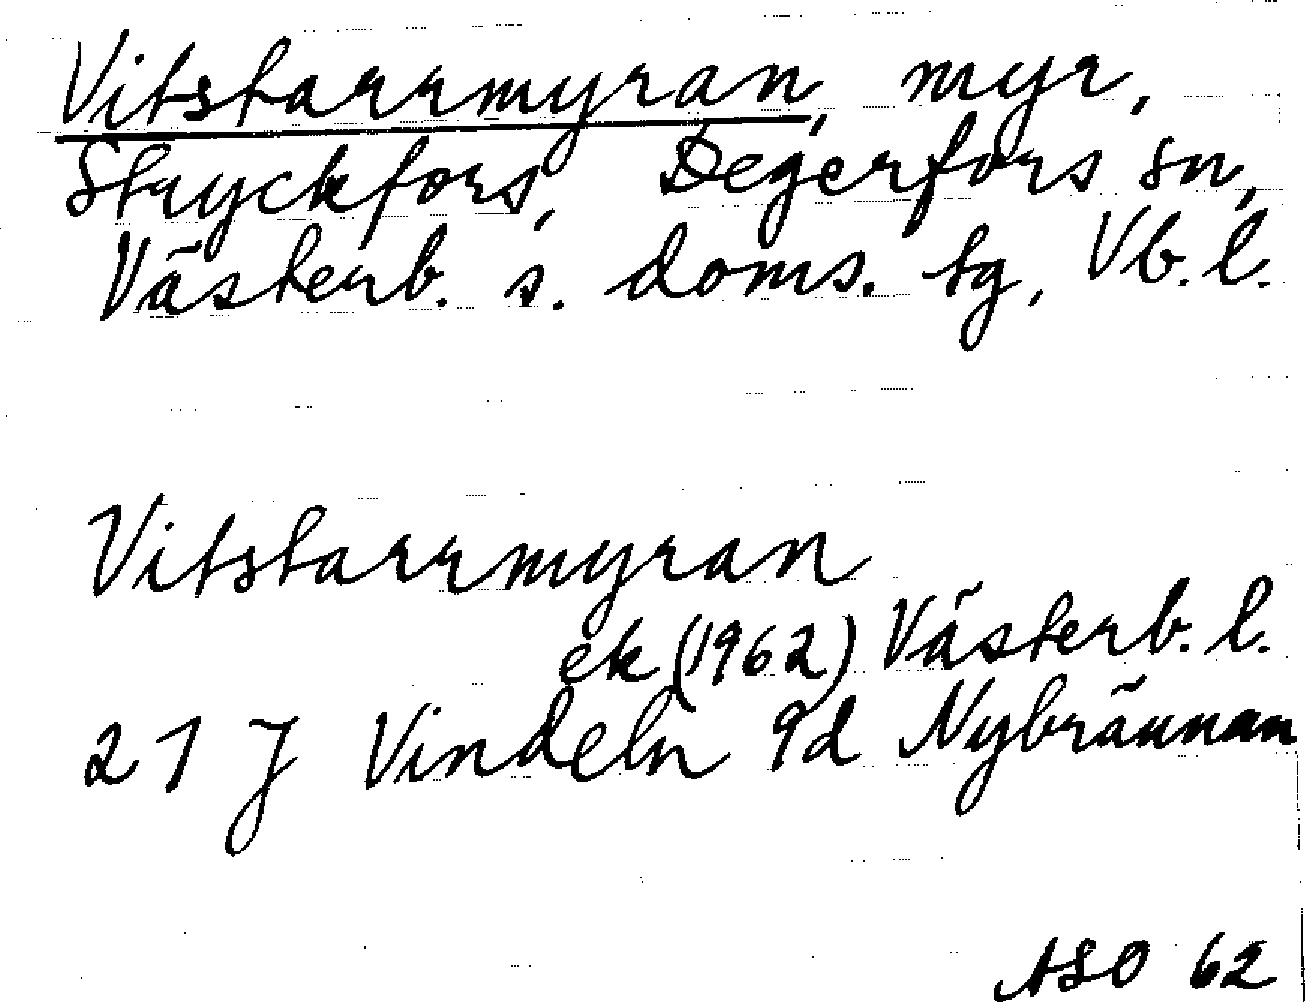 Vitstarrmyran, myr,
Stryckfors, Degerfors sn,
Västerb. s. doms. tg, Vb. l.
Vitstarrmyran
ek (1962) Västerb. l.
21 J Vindeln 9d Nybrännan
ASO 62